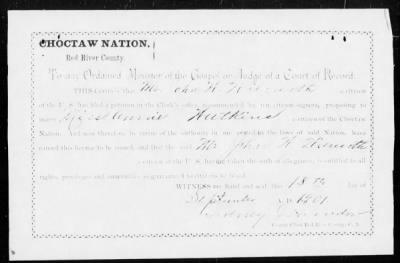 CHOCTAW NATION,
Red River County.
To any Ordained Minister of the Gospel or Judge of a Court of Record.
THIS that Mr. John H. a citizen
of the U. S. has filed a petition in the Clerk's office, recommended by ten citizen signers, proposing to
marry Miss Annie Watkins a citizen of the Choctaw
Nation. And now therefore, by virtue of the authority in me vested by the laws of said Nation,
caused this license to be issued, and that the said Mr John H
a citizen of the U. S. having taken the oath of allegiance, is entitled to all
rights, privileges and immunities
WITNESS my Hand and seal this 18th day of
September A.D. 1901
County Clerk Red R. County, C. N.